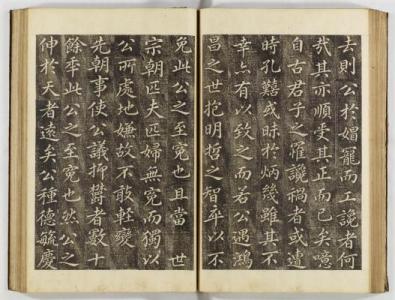 去則公於娼寵而工讒者何
哉其亦順受其正而已矣噫
自古君子之罹讒禍者或遭
時孔囏或昧於炳幾雖其不
幸亦有以致之而若公遇鴻
昌之世抱明哲之智卒以不
免此公之至寃也且當世
宗朝匹夫匹婦無寃而獨以
公所處地嫌故不敢輕變
先朝事使公議抑鬱者數十
餘年此公之至寃也然公之
伸於天者遠矣公種德毓慶